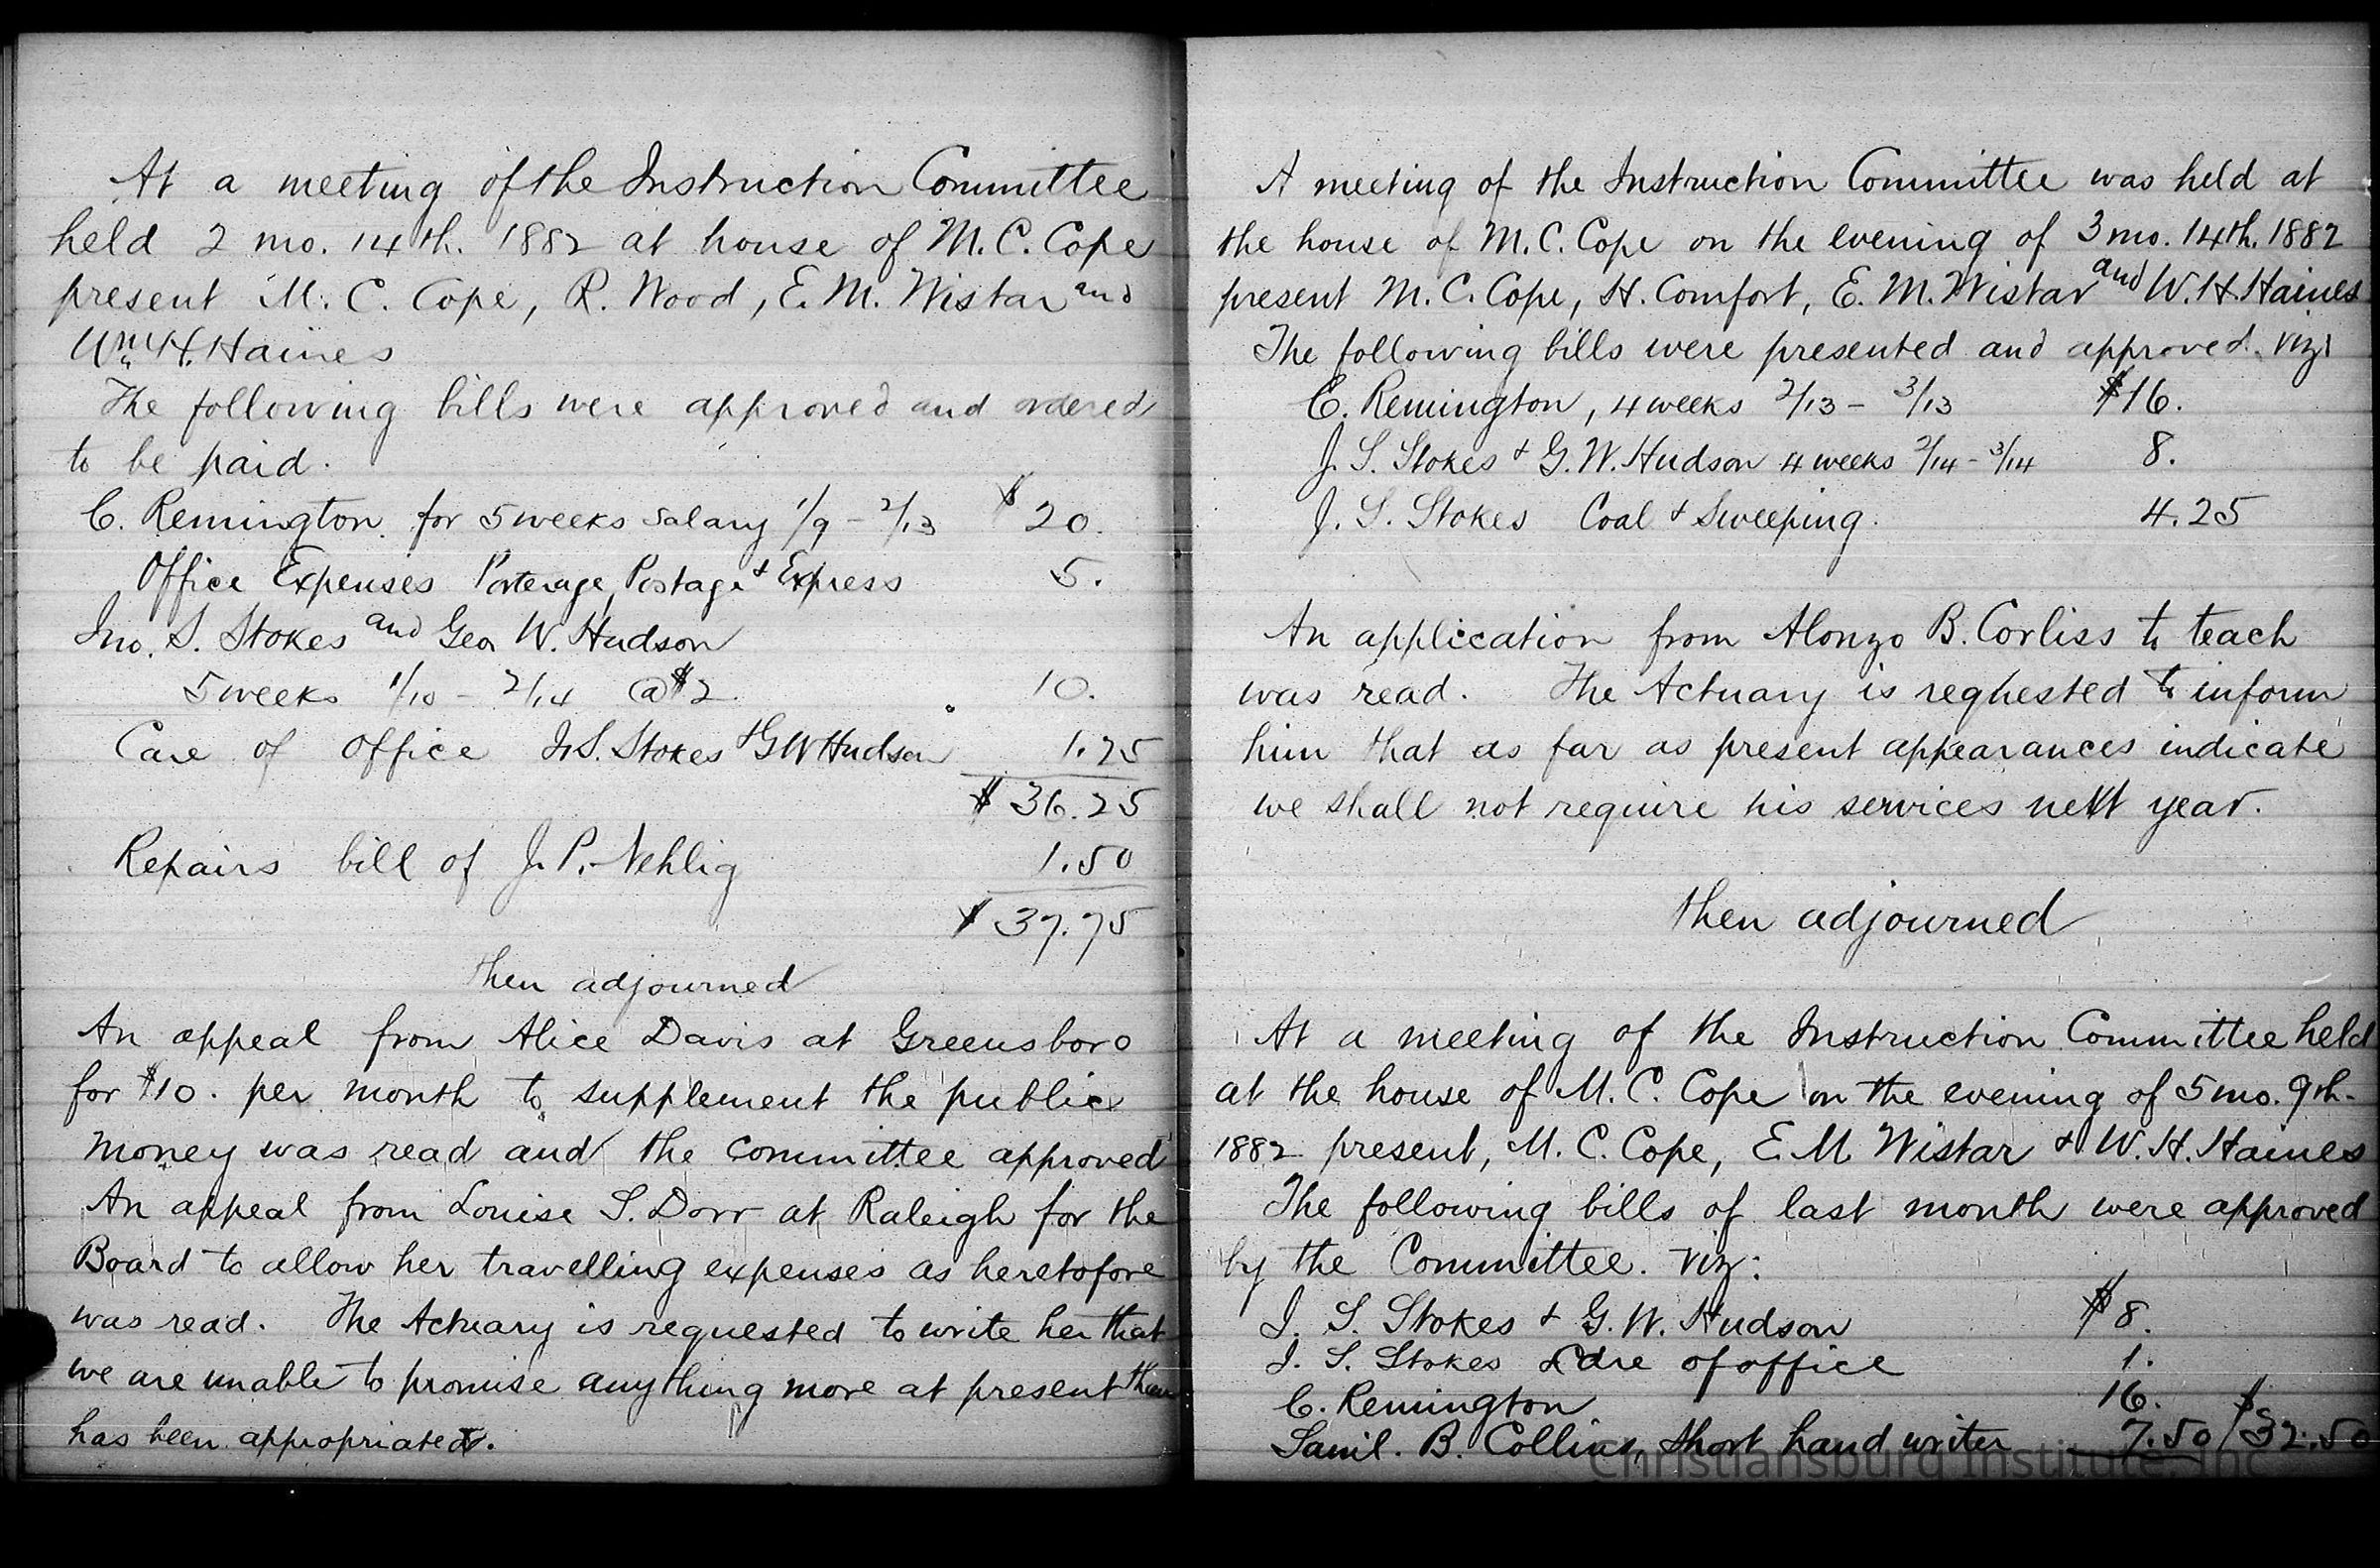 At a meeting of the Instruction Committee
held 2 mo. 14th. 1882 at house of M. C. Cope
present M. C. Cope, R. Wood, E. M. Wistar and
Wm. H. Haines
The following bills were approved and ordered
to be paid.
C. Remington for 5 weeks salary 1/9 - 2/13 $20.
Office Expenses Porterage, Postage & Express 5.
Jno. S. Stokes and Geo W. Hudson
5 weeks 1/10 - 2/14 @ $2. 10.
Care of office J. S. Stokes & G W Hudson 1.25
$36.25
Repairs bill of J. P. Nehlig 1.50
$37.75
then adjourned
An appeal from Alice Davis at Greensboro
for $10. per month to supplement the public
money was read and the committee approved
An appeal from Louise S. Dorr at Raleigh for the
Board to allow her travelling expenses as heretofore
was read. The Actuary is requested to write her that
we are unable to promise anything more at present than
has been appropriated.
A meeting of the Instruction Committee was held at
the house of M. C. Cope on the evening of 3 mo. 14th. 1882
present M. C. Cope, H. Comfort, E. M. Wistar and W. H. Haines
The following bills were presented and approved. viz:
C. Remington, 4 weeks 2/13 - 3/13 $16.
J. S. Stokes & G. W. Hudson 4 weeks 2/14 - 3/14 8.
J. S. Stokes Coal & Sweeping. 4.25
An application from Alonzo B. Corliss to teach
was read. The Actuary is requested to inform
him that as far as present appearances indicate
we shall not require his services next year.
then adjourned
At a meeting of the Instruction Committee held
at the house of M. C. Cope on the evening of 5 mo. 9th.
1882 present, M. C. Cope, E. M Wistar & W. H. Haines
The following bills of last month were approved
by the Committee. viz:
J. S. Stokes & G. W. Hudson $8.
J. S. Stokes Care of office 1.
C. Remington 16.
Saml. B. Collins, Short hand writer 7.50 / $32.50
Christiansburg Institute, Inc